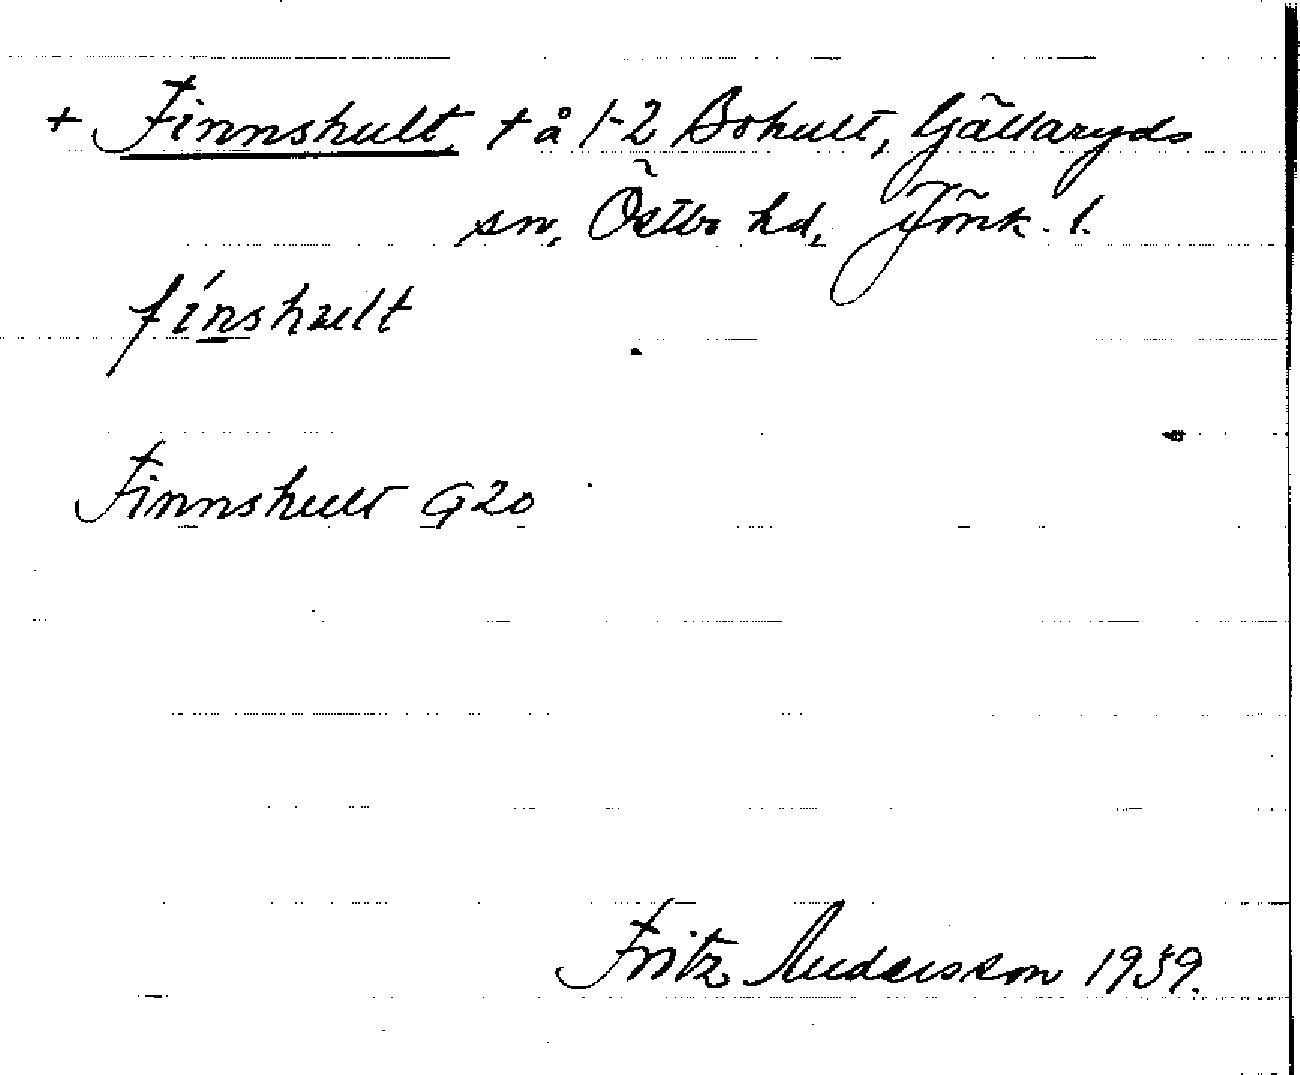 + Finnshult, t å 1-2 Bohult, Gällaryds
sn, Östbo hd, Jönk. l.
fínshult
Finnshult G20
Fritz Andersson 1939.